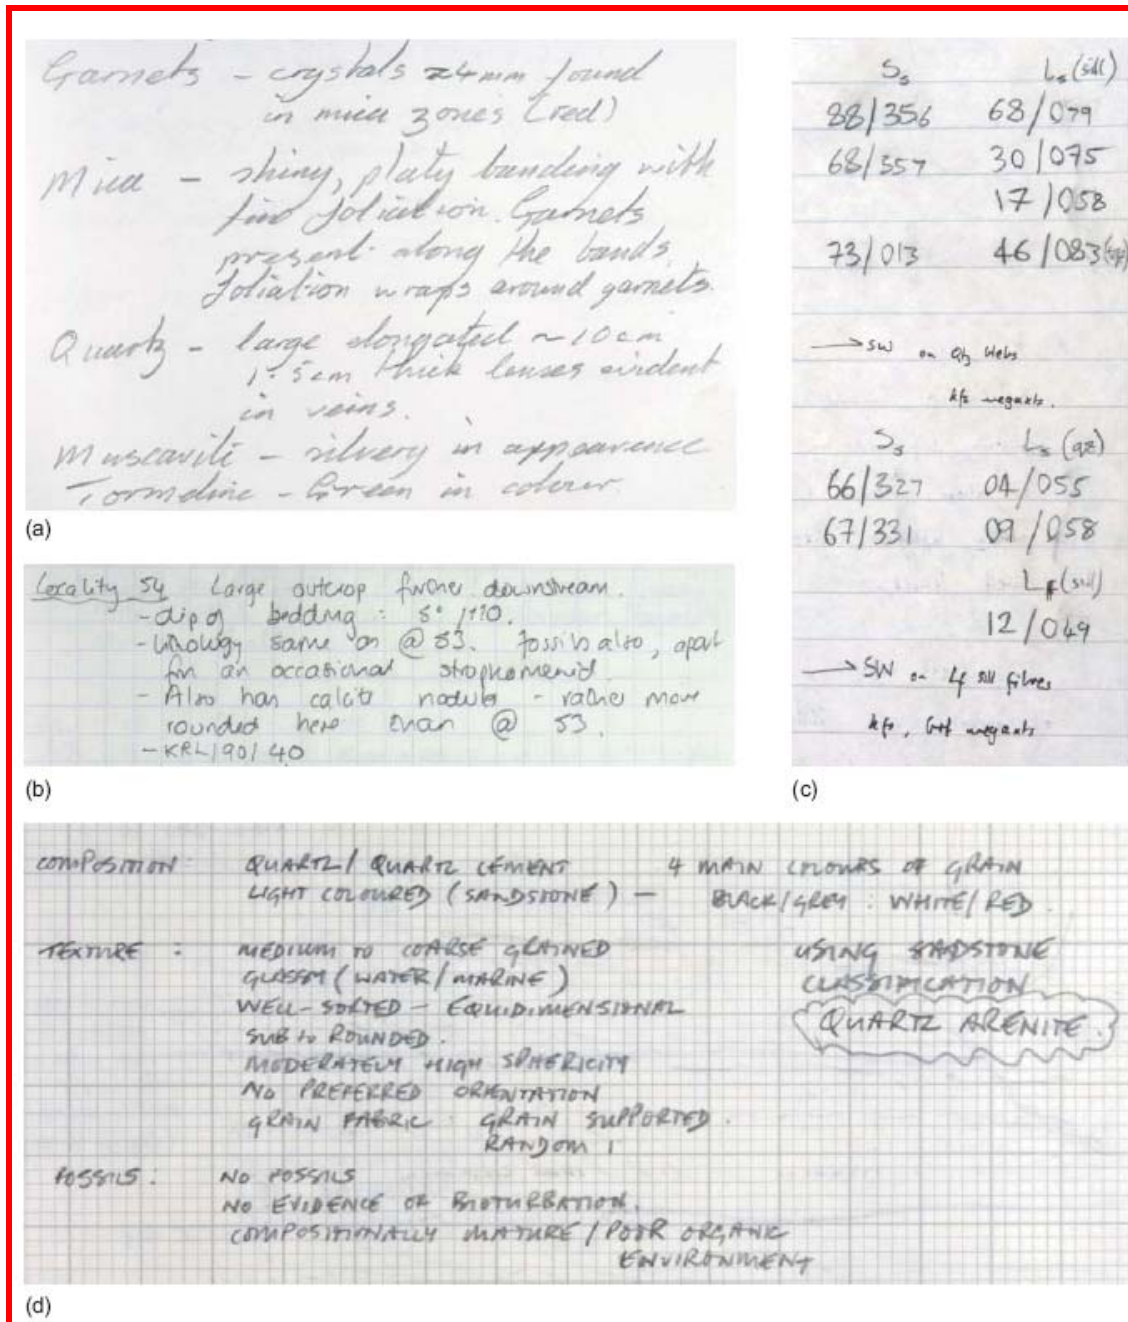 Garnets - crystals ≈4mm found
in mica zones (red)
Mica - shiny, platy banding with
fine foliation. Garnets
present along the bands
foliation wraps around garnets.
Quartz - large elongated ~10cm
1.5cm thick lenses evident
in veins.
Muscavite - silvery in appearence
Tormeline - Green in colour.
(a)
Locality 54 Large outcrop further downstream.
- dip of bedding : 8°
- lithology same as @ 53. fossils also, apart
for an occasional strophomenid
- Also has calcite nodules - rather more
rounded here than @ 53.
- KRL/90/40
(b)
Ss Ls (sill)
88/356 68/079
68/357 30/075
17/058
73/013 46/083
→ SW on Qtz blebs
kfs megaxts.
Ss Ls (qz)
66/327 04/055
67/331 09/058
Lf (sill)
12/049
→ SW on Lf sill fibres
kfs, megaxts
(c)
COMPOSITION: QUARTZ / QUARTZ CEMENT 4 MAIN COLOURS OF GRAIN
LIGHT COLOURED (SANDSTONE) — BLACK/GREY : WHITE/RED.
TEXTURE : MEDIUM TO COARSE GRAINED USING SANDSTONE
GLASSY (WATER/MARINE) CLASSIFICATION
WELL-SORTED - EQUIDIMENSIONAL QUARTZ ARENITE.
SUB to ROUNDED.
MODERATELY HIGH SPHERICITY
NO PREFERRED ORIENTATION
GRAIN FABRIC : GRAIN SUPPORTED.
RANDOM
FOSSILS : NO FOSSILS
NO EVIDENCE OF BIOTURBATION.
COMPOSITIONALLY MATURE / POOR ORGANIC
ENVIRONMENT
(d)